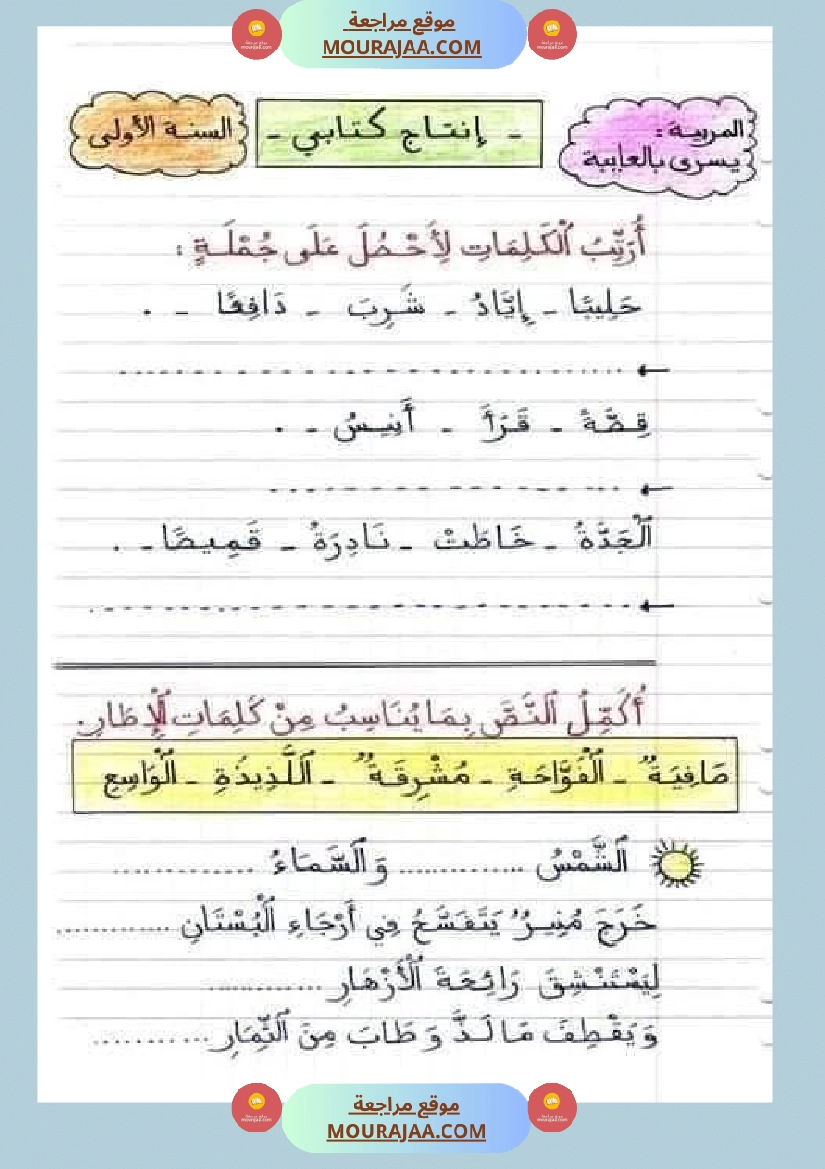 موقع مراجعة
MOURAJAA.COM
المربية : يسرى بالعايبة
- إنتاج كتابي -
السنة الأولى
أُرَتِّبُ ٱلْكَلِمَاتِ لِأَحْصُلَ عَلَى جُمْلَةٍ :
حَلِيبًا - إِيَّادُ - شَرِبَ - دَافِئًا - .
قِصَّةً - قَرَأَ - أَنِيسُ - .
ٱلْجَدَّةُ - خَاطَتْ - نَادِرَةُ - قَمِيصًا - .
أُكَمِّلُ ٱلنَّصَّ بِمَا يُنَاسِبُ مِنْ كَلِمَاتِ ٱلْإِطَارِ.
صَافِيَةٌ - ٱلْفَوَّاحَةِ - مُشْرِقَةٌ - ٱللَّذِيذَةِ - ٱلْوَاسِعِ
ٱلشَّمْسُ .............. وَٱلسَّمَاءُ ..............
خَرَجَ مُنِيرٌ يَتَفَسَّحُ فِي أَرْجَاءِ ٱلْبُسْتَانِ ..............
لِيَسْتَنْشِقَ رَائِحَةَ ٱلْأَزْهَارِ ..............
وَيَقْطِفَ مَا لَذَّ وَطَابَ مِنَ ٱلثِّمَارِ ..............
موقع مراجعة
MOURAJAA.COM